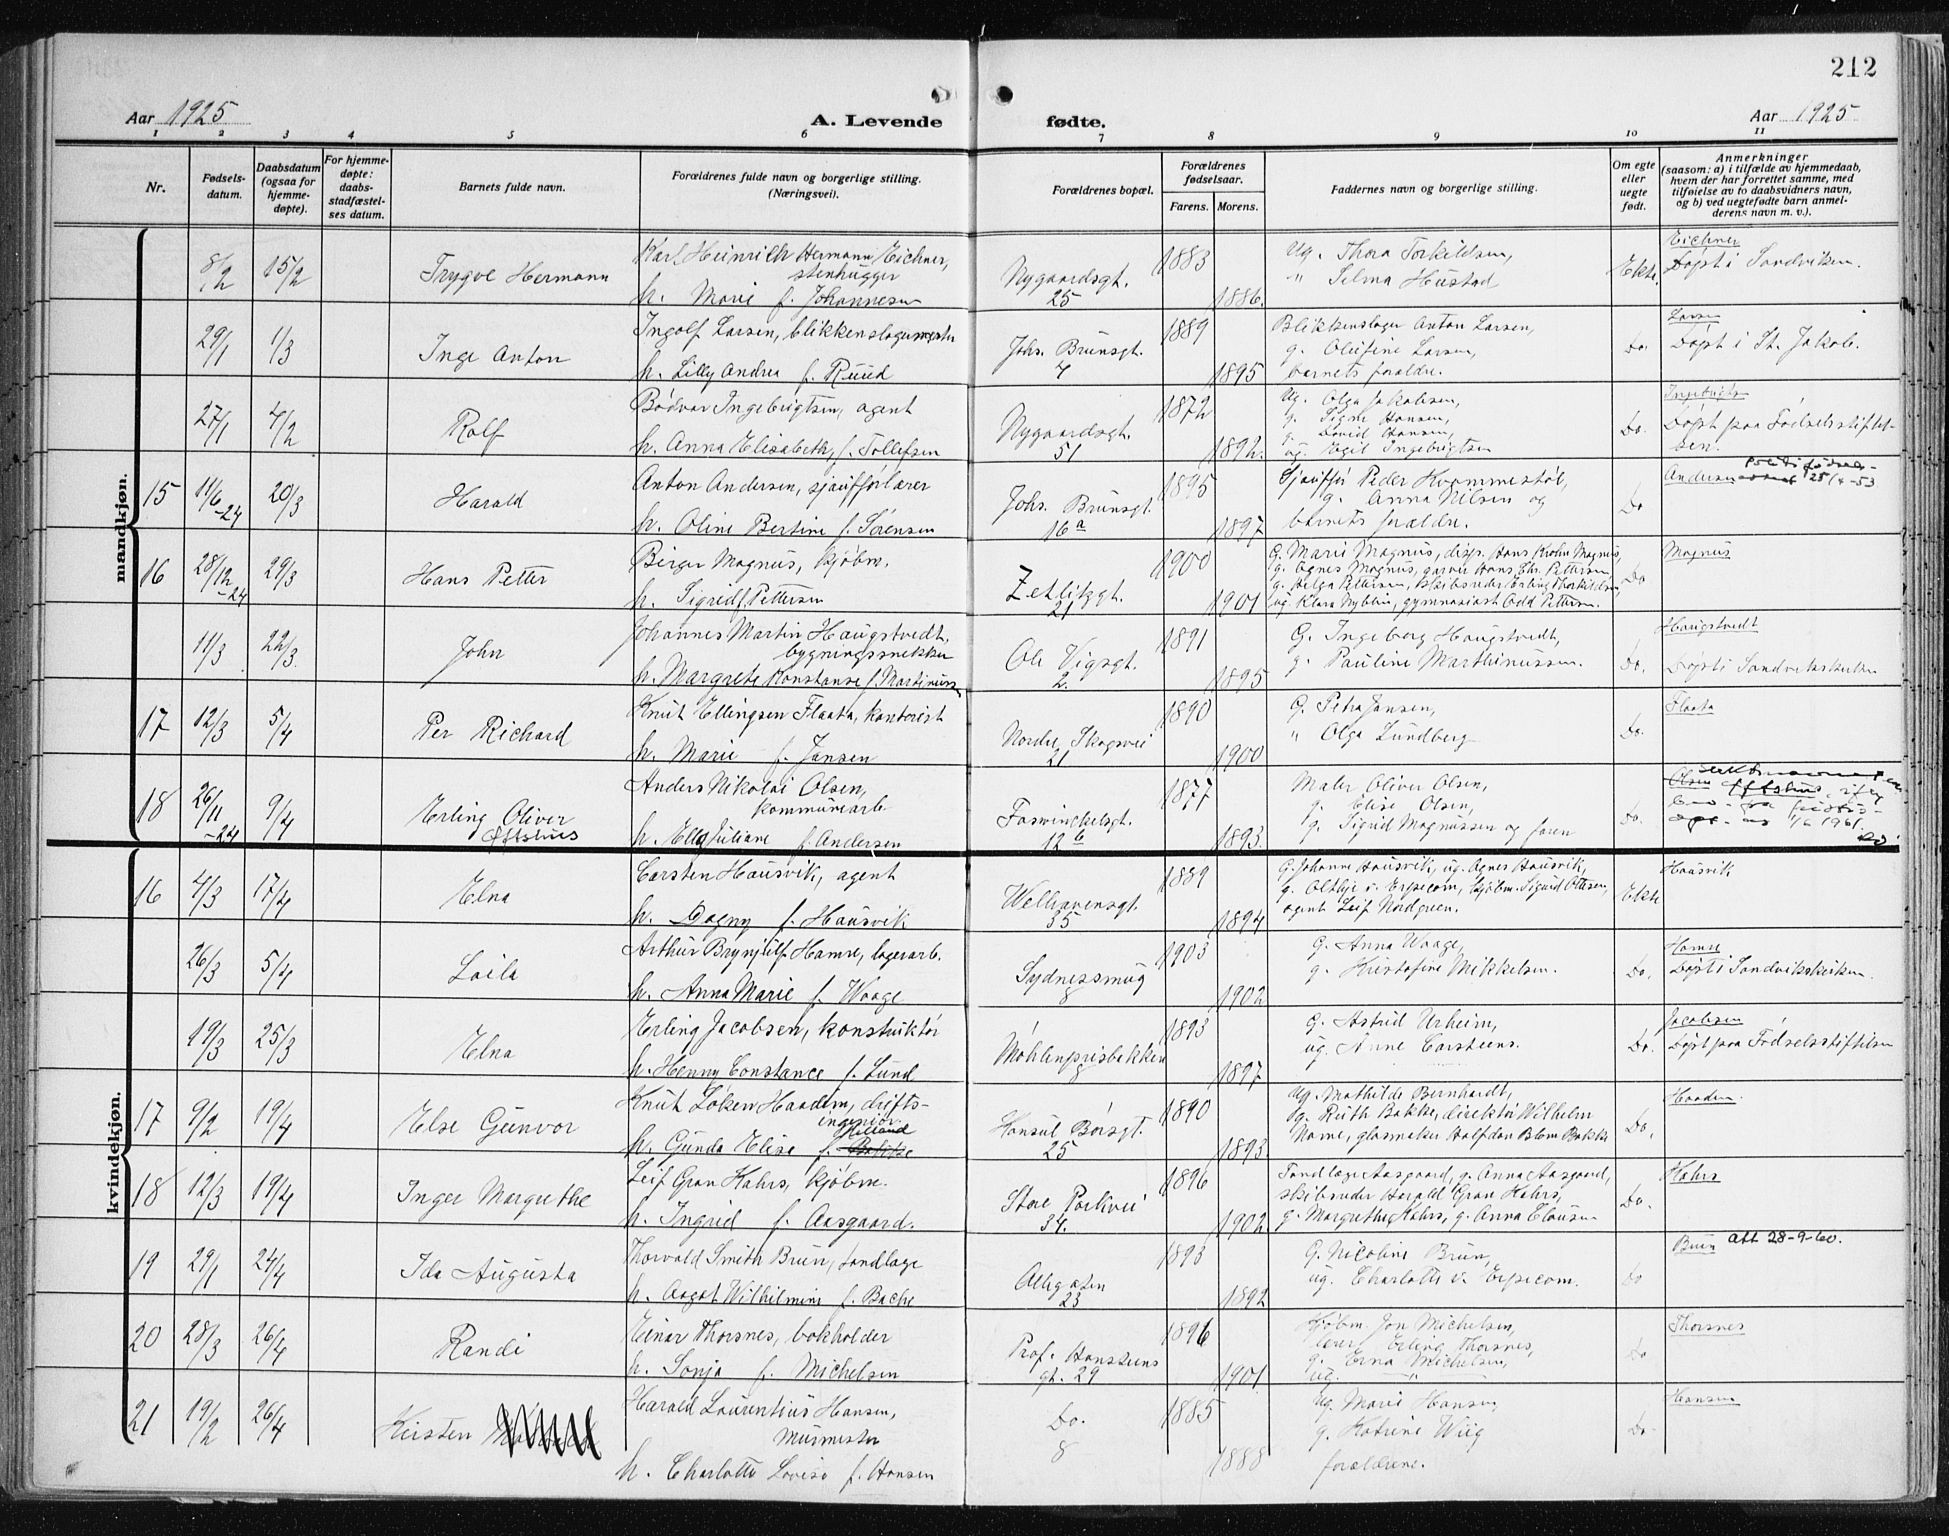 212
Aar 1925
A. Levende
fødte.
Aar 1925
1 2 3 4 5 6 7 8 9 10 11
Nr.
Fødsels-
datum.
Daabsdatum
(ogsaa for
hjemme-
døpte).
For hjemme-
døpte:
daabs-
stadfæstel-
ses datum.
Barnets fulde navn.
Forældrenes fulde navn og borgerlige stilling.
(Næringsvei).
Forældrenes bopæl.
Forældrenes
fødselsaar.
Farens. Morens.
Faddernes navn og borgerlige stilling.
Om egte
eller
uegte
født.
Anmerkninger
(saasom: a) i tilfælde av hjemmedaab,
hvem der har forrettet samme, med
tilføielse av to daabsvidners navn,
og b) ved uegtefødte barn anmel-
derens navn m. v.).
mandkjøn.
8/2 15/2
Trygve Hermann
Karl Heinrich Hermann Eichner,
stenhugger
h. Marie f. Johannesen
Nygaardsgt.
25
1883
1886.
Ug. Thora Torkildsen,
" Selma Hustad
Ekte.
Eichner
Døpt i Sandviken.
29/1 1/3
Inge Anton
Ingolf Larsen, blikkenslagermester
h. Lilly Andrea f. Ruud
Johs. Brunsgt.
7
1889
1895
Blikkenslager Anton Larsen,
g. Olufine Larsen,
barnets foraldre.
Do.
Larsen
Døpt i St. Jakob.
27/1 4/2
Rolf
Bødvar Ingebrigtsen, agent
h. Anna Elisabeth, f. Tollefsen
Nygaardsgt.
51
1872
1892.
Ug. Olga Jakobsen,
g. Signe Hansen,
g. David Hansen,
ug. Egil Ingebrigtsen
Do.
Døpt paa Fødselsstiftel-
sen.
15 11/6-24 20/3
Harald
Anton Andersen, sjauførlærer
h. Oline Bertine f. Sørensen
Johs. Brunsgt.
16a
1895
1897
Sjauffør Peder Krommestøl,
g. Anna Nilsen og
barnets foraldre.
Do
Andersen
25/4-53
16 28/12-24 29/3
Hans Petter
Birger Magnus, kjøbm.
h. Sigrid f. Pettersen
Zetlitzgt.
21
1900
1901
G. Marie Magnus, disp. Hans Krohn Magnus,
g. Agnes Magnus, garver Hans Chr. Pettersen
g. Helga Pettersen, skibsreder Erling Thorkildsen
ug. Klara Nyblin, gymnasiast Odd Pettersen.
Do
Magnus
11/3 22/3
John
Johannes Martin Haugstvedt,
bygningssnekker
h. Margrete Konstanse f. Martinussen
Ole Vigsgt.
2.
1891
1895
G. Ingeborg Haugstvedt,
g. Pauline Marthinussen.
Do.
Haugstvedt
Døpt i Sandvikskirken
17 12/3 5/4
Per Richard
Knut Ellingsen Flaata, kontorist
h. Marie f. Jansen
Nordre Skogvei
21
1890
1900
G. Petra Jansen,
" Olga Lundberg
Do.
Flaata
18 26/11-24 9/4
Erling Oliver
Øftshus
Anders Nikolai Olsen,
kommunearb
h. Ella Juliane f. Andersen
Fosswinckelsgt.
12b
1877
1893.
Maler Oliver Olsen,
g. Elise Olsen,
g. Sigrid Magnussen og faren
Do.
Olsen
1/6 1961.
kvindekjøn.
16 4/3 17/4
Elna
Carsten Hausvik, agent
h. Dagny f. Hausvik
Welhavensgt.
35
1889
1894
G. Johanne Hausvik, ug. Agnes Hausvik,
g. Altbje v. Erpecom, kjøbm. Sigurd Ottesen,
agent Leif Nordgreen.
Ekte
Hausvik
26/3 5/4
Laila
Arthur Brynjulf Hamre, lagerarb.
h. Anna Marie f. Waage
Sydnessmug
8
1903
1902
G. Anna Waage,
g. Kristofine Mikkelsen.
Do.
Hamre
Døpt i Sandvikskirken
19/3 25/3
Elna
Erling Jacobsen, konstruktør
h. Henny Constance f. Lund
Møhlenprisbakken
8
1893
1897
G. Astrid Urheim,
ug. Anne Carstens.
Do.
Jacobsen
Døpt paa Fødselsstiftelsen
17 9/2 19/4
Else Gunvor
Knut Løken Haadem, drifts-
ingeniør
h. Gunda Elise f.
Konsul Børsgt.
25
1890
1893
Ug. Mathilde Bernhardt,
Ug. Ruth Bakke, direktør Wilhelm
Narne, glasmaker Halfdan Blom Bakke
Do.
Haadem
18 12/3 19/4
Inger Margrethe
Leif Gran Kahrs, kjøbm.
h. Ingrid f. Aasgaard.
Store Parkvei
34.
1896
1902
Tandlæge Aasgaard, g. Anna Aasgaard,
skibsreder Harald Gran Kahrs,
g. Margrethe Kahrs, g. Anna Clausen
Do.
Kahrs
19 29/1 24/4
Ida Augusta
Thorvald Smith Brun, tandlæge
h. Aagot Wilhelmine f. Bache
Allégaten
23
1893
1892
G. Nicoline Brun,
ug. Charlotte v. Erpecom.
Do
Brun att 28-9-60.
20 28/3 26/4
Randi
Einar Thorsnes, bokholder
h. Sonja f. Michelsen
Prof. Hansteens
gt. 29
1896
1901
Kjøbm. Jon Michelsen,
lærer Erling Thorsnes,
g. Erna Michelsen,
ug. "
Do
Thorsnes
21 19/2 26/4
Kirsten
Harald Laurentius Hansen,
murmester
h. Charlotte Lovise f. Hansen
Do.
8
1885
1888
Ug. Marie Hansen,
g. Katrine Wiig
forældrene.
Do.
Hansen